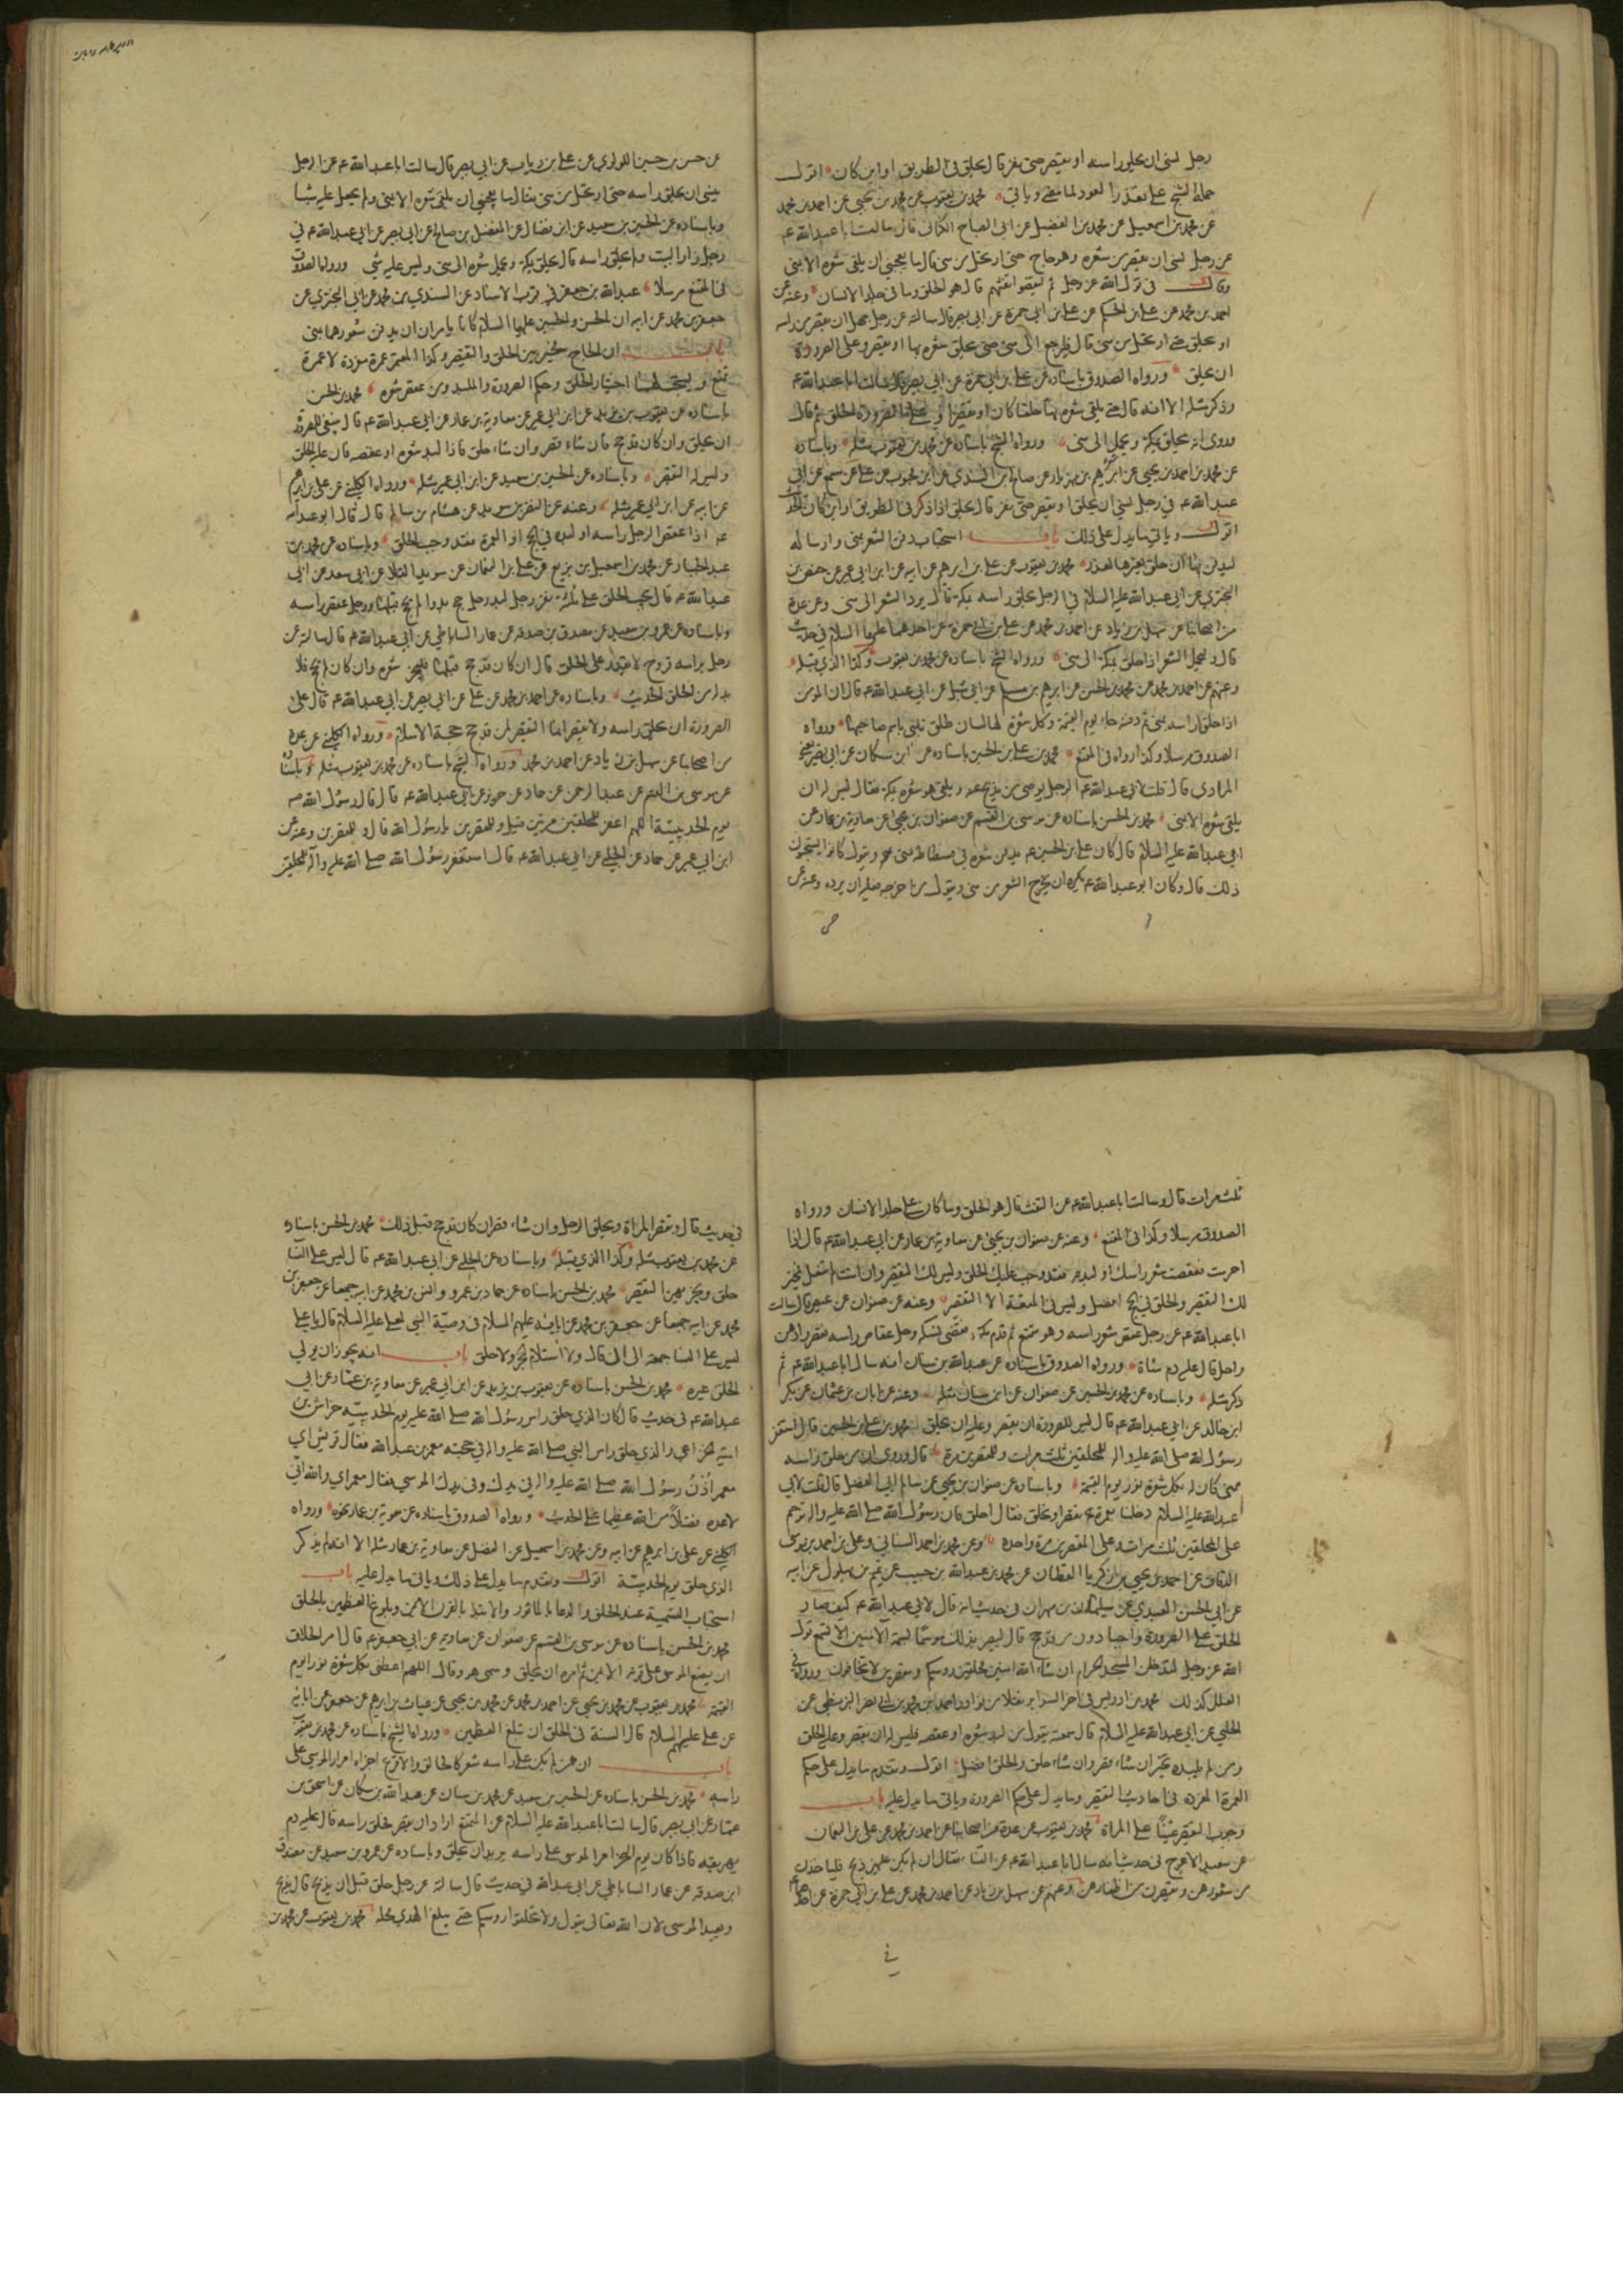 رجل نسي ان يحلق راسه او يقصر حتى نفر قال يحلق في الطريق او اين كان اقول
حمله الشيخ على تعذر العود لما مضى وياتي محمد بن يعقوب عن محمد بن يحيى عن احمد بن محمد
عن محمد بن اسمعيل عن محمد بن الفضيل عن ابي الصباح الكناني قال سالت ابا عبد الله ع
عن رجل نسي ان يقصر من شعره وهو حاج حتى ارتحل من منى قال ما يعجبني ان يلقى شعره الا بمنى
وقال في قول الله عز وجل ثم ليقضوا تفثهم قال هو الحلق وما في جلد الانسان وعنه عن
احمد بن محمد عن علي بن الحكم عن علي بن ابي حمزة عن ابي بصير قال سالته عن رجل جهل ان يقصر من راسه
او يحلق حتى ارتحل من منى قال فليرجع الى منى حتى يحلق شعره بها او يقصر وعلى الصرورة
ان يحلق ورواه الصدوق باسناده عن علي بن ابي حمزة عن ابي بصير قال سالت ابا عبد الله ع
وذكر مثله الا انه قال حتى يلقى شعره بها حلقا كان او تقصيرا وعلى الصرورة الحلق ثم قال
وروى انه يحلق بمكة ويحمل الى منى ورواه الشيخ باسناده عن محمد بن يعقوب مثله وباسناده
عن محمد بن احمد بن يحيى عن ابرهيم بن مهزيار عن صالح بن السندي عن ابن محبوب عن علي عن مسمع عن ابي
عبد الله ع في رجل نسي ان يحلق او يقصر حتى نفر قال يحلق اذا ذكر في الطريق او اين كان الحديث
اقول وياتي ما يدل على ذلك باب استحباب دفن الشعر بمنى وارساله
ليدفن بها ان حلق بغيرها لعذر محمد بن يعقوب عن علي بن ابرهيم عن ابيه عن ابن ابي عمير عن حفص بن
البختري عن ابي عبد الله عليه السلام في الرجل يحلق راسه بمكة قال يرد الشعر الى منى وعن عدة
من اصحابنا عن سهل بن زياد عن احمد بن محمد عن علي بن ابي حمزة عن احدهما عليهما السلام في حديث
قال وليحمل الشعر اذا حلق بمكة الى منى ورواه الشيخ باسناده عن محمد بن يعقوب وكذا الذي قبله
وعنهم عن احمد بن محمد عن محمد بن الحسن عن ابرهيم بن مسلم عن ابي شبل عن ابي عبد الله ع قال ان المؤمن
اذا حلق راسه بمنى ثم دفنه جاء يوم القيمة وكل شعرة لها لسان طلق تلبي باسم صاحبها ورواه
الصدوق مرسلا وكذا رواه في المقنع محمد بن علي بن الحسين باسناده عن ابن مسكان عن ابي بصير يعني
المرادي قال قلت لابي عبد الله ع الرجل يوصي من يذبح عنه ويلقي هو شعره بمكة فقال ليس له ان
يلقى شعره الا بمنى محمد بن الحسن باسناده عن موسى بن القسم عن صفوان بن يحيى عن معاوية بن عمار عن
ابي عبد الله عليه السلام قال كان علي بن الحسين ع يدفن شعره في فسطاطه بمنى ويقول كانوا يستحبون
ذلك قال وكان ابو عبد الله ع يكره ان يخرج الشعر من منى ويقول من اخرجه فعليه ان يرده وعنه عن
عن حسن بن حسين اللولوي عن علي بن رياب عن ابي بصير قال سالت ابا عبد الله ع عن الرجل
ينسى ان يحلق راسه حتى ارتحل من منى فقال ما يعجبني ان يلقى شعره الا بمنى ولم يجعل عليه شيئا
وباسناده عن الحسين بن سعيد عن ابن فضال عن المفضل بن صالح عن ابي بصير عن ابي عبد الله ع في
رجل زار البيت ولم يحلق راسه قال يحلق بمكة ويحمل شعره الى منى وليس عليه شي ورواه الصدوق
في المقنع مرسلا عبد الله بن جعفر في قرب الاسناد عن السندي بن محمد عن ابي البختري عن
جعفر بن محمد عن ابيه ان الحسن والحسين عليهما السلام كانا يامران ان يدفن شعورهما بمنى
باب ان الحاج مخير بين الحلق والتقصير وكذا المعتمر عمرة مفردة لا عمرة
تمتع ويستحب لهما اختيار الحلق وحكم الصرورة والملبد ومن عقص شعره محمد بن الحسن
باسناده عن يعقوب بن يزيد عن ابن ابي عمير عن معاوية بن عمار عن ابي عبد الله ع قال ينبغي للصرورة
ان يحلق وان كان قد حج فان شاء قصر وان شاء حلق فاذا لبد شعره او عقصه فان عليه الحلق
وليس له التقصير وباسناده عن الحسين بن سعيد عن ابن ابي عمير مثله ورواه الكليني عن علي بن ابرهيم
عن ابيه عن ابن ابي عمير مثله وعنه عن النضر بن سويد عن هشام بن سالم قال قال ابو عبد الله
ع اذا عقص الرجل راسه او لبده في الحج او العمرة فقد وجب الحلق وباسناده عن محمد بن
عبد الجبار عن محمد بن اسمعيل بن بزيع عن علي بن النعمان عن سويد القلا عن ابي سعد عن ابي
عبد الله ع قال يجب الحلق على ثلثة نفر رجل لبد ورجل حج بدوا لم يحج قبلها ورجل عقص راسه
وباسناده عن عمرو بن سعيد عن مصدق بن صدقة عن عمار الساباطي عن ابي عبد الله ع قال سالته عن
رجل براسه قروح لا يقدر على الحلق قال ان كان قد حج قبلها فليجز شعره وان كان لم يحج فلا
بد له من الحلق الحديث وباسناده عن احمد بن محمد عن علي عن ابي بصير عن ابي عبد الله ع قال على
الصرورة ان يحلق راسه ولا يقصر انما التقصير لمن قد حج حجة الاسلام ورواه الكليني عن عدة
من اصحابنا عن سهل بن زياد عن احمد بن محمد ورواه الشيخ باسناده عن محمد بن يعقوب مثله وباسناده
عن موسى بن القسم عن عبد الرحمن عن حماد عن حريز عن ابي عبد الله ع قال قال رسول الله ص
يوم الحديبية اللهم اغفر للمحلقين مرتين قيل وللمقصرين يا رسول الله قال وللمقصرين وعنه عن
ابن ابي عمير عن حماد عن الحلبي عن ابي عبد الله ع قال استغفر رسول الله صلى الله عليه وآله للمحلقين
ثلث مرات قال وسالت ابا عبد الله ع عن التفث قال هو الحلق وما كان على جلد الانسان ورواه
الصدوق مرسلا وكذا في المقنع وعنه عن صفوان بن يحيى عن معاوية بن عمار عن ابي عبد الله ع قال اذا
احرمت فعقصت شعر راسك او لبدته فقد وجب عليك الحلق وليس لك التقصير وان انت لم تفعل فمخير
لك التقصير والحلق في الحج افضل وليس في المتعة الا التقصير وعنه عن صفوان عن عيص قال سالت
ابا عبد الله ع عن رجل عقص شعر راسه وهو متمتع ثم قدم مكة فقضى نسكه وحل عقاص راسه فقصر وادهن
واحل قال عليه دم شاة ورواه الصدوق باسناده عن عبد الله بن سنان انه سال ابا عبد الله ع ثم
ذكر مثله وباسناده عن محمد بن الحسين عن صفوان عن ابن سنان مثله وعنه عن ابان بن عثمان عن بكر
ابن خالد عن ابي عبد الله ع قال ليس للصرورة ان يقصر وعليه ان يحلق محمد بن علي بن الحسين قال استغفر
رسول الله صلى الله عليه واله للمحلقين ثلث مرات وللمقصرين مرة قال وروى ان من حلق راسه
بمنى كان له بكل شعرة نور يوم القيمة وباسناده عن صفوان بن يحيى عن سالم ابي الفضل قال قلت لابي
عبد الله عليه السلام دخلنا بعمرة نقصر او نحلق فقال احلق فان رسول الله صلى الله عليه واله ترحم
على المحلقين ثلث مرات وعلى المقصرين مرة واحدة وعن محمد بن احمد السناني وعلي بن احمد بن موسى
الدقاق عن احمد بن يحيى بن زكريا القطان عن محمد بن عبد الله بن حبيب عن تميم بن بهلول عن ابيه
عن ابي الحسن العبدي عن سليمان بن مهران في حديث انه قال لابي عبد الله ع كيف صار
الحلق على الصرورة واجبا دون من قد حج قال ليصير بذلك موسما بسمة الامنين الا تسمع قول
الله عز وجل لتدخلن المسجد الحرام ان شاء الله امنين محلقين روسكم ومقصرين لا تخافون ورواه في
العلل كذلك محمد بن ادريس في اخر السراير نقلا من نوادر احمد بن محمد بن ابي نصر البزنطي عن
الحلبي عن ابي عبد الله عليه السلام قال سمعته يقول من لبد شعره او عقصه فليس له ان يقصر وعليه الحلق
ومن لم يلبده تخير ان شاء قصر وان شاء حلق والحلق افضل اقول وتقدم ما يدل على حكم
العمرة المفردة في احاديث التقصير وما يدل على حكم الصرورة وياتي ما يدل عليه باب
وجوب التقصير عينا على المراة محمد بن يعقوب عن عدة من اصحابنا عن احمد بن محمد عن علي بن النعمان
عن سعيد الاعرج في حديث انه سال ابا عبد الله ع عن النساء فقال ان لم يكن عليهن ذبح فلياخذن
من شعورهن ويقصرن من اظفارهن وعنهم عن سهل بن زياد عن احمد بن محمد عن علي بن ابي حمزة عن احدهما
في
في حديث قال وتقصر المراة ويحلق الرجل وان شاء قصر ان كان قد حج قبل ذلك محمد بن الحسن باسناده
عن محمد بن يعقوب مثله وكذا الذي قبله وباسناده عن الحلبي عن ابي عبد الله ع قال ليس على النساء
حلق ويجزيهن التقصير محمد بن الحسن باسناده عن حماد بن عمرو وانس بن محمد عن ابيه جميعا عن جعفر بن
محمد عن ابيه جميعا عن جعفر بن محمد عن ابائه عليهم السلام في وصية النبي لعلي عليه السلام قال يا علي
ليس على النسا جمعة الى ان قال ولا استلام الحجر ولا حلق باب انه يجوز ان يولي
الحلق غيره محمد بن الحسن باسناده عن يعقوب بن يزيد عن ابن ابي عمير عن معاوية بن عمار عن ابي
عبد الله ع في حديث قال كان الذي حلق راس رسول الله صلى الله عليه يوم الحديبية خراش بن
امية الخزاعي والذي حلق راس النبي صلى الله عليه واله في حجته معمر بن عبد الله فقال قريش اي
معمر أذن رسول الله صلى الله عليه واله في يدك وفي يدك الموسى فقال معمر اي والله اني
لاعده فضلا من الله عظيما على الحديث ورواه الصدوق باسناده عن معوية بن عمار نحوه ورواه
الكليني عن علي بن ابرهيم عن ابيه وعن محمد بن اسمعيل عن الفضل عن معاوية بن عمار مثله الا انه لم يذكر
الذي حلق يوم الحديبية اقول وتقدم ما يدل على ذلك وياتي ما يدل عليه باب
استحباب التسمية عند الحلق والدعا بالماثور والابتدا بالقرن الايمن وبلوغ العظمين بالحلق
محمد بن الحسن باسناده عن موسى بن القسم عن صفوان عن معاوية عن ابي جعفر ع قال امر الحلاق
ان يضع الموسى على قرنه الايمن ثم امره ان يحلق وسمى هو وقال اللهم اعطني بكل شعرة نورا يوم
القيمة محمد بن يعقوب عن محمد بن يحيى عن احمد بن محمد عن محمد بن يحيى عن غياث بن ابرهيم عن جعفر عن ابائه
عن علي عليهم السلام قال السنة في الحلق ان تبلغ العظمين ورواه الشيخ باسناده عن محمد بن يعقوب
باب ان من لم يكن على راسه شعر كالحالق والاقرع اجزاه امرار الموسى على
راسه محمد بن الحسن باسناده عن الحسين بن سعيد عن محمد بن سنان عن عبد الله بن مسكان عن اسحق بن
عمار عن ابي بصير قال سالت ابا عبد الله عليه السلام عن المتمتع اراد ان يقصر فحلق راسه قال عليه دم
يهريقه فاذا كان يوم النحر امر الموسى على راسه يريد ان يحلق وباسناده عن عمرو بن سعيد عن مصدق
ابن صدقة عن عمار الساباطي عن ابي عبد الله في حديث قال سالته عن رجل حلق قبل ان يذبح قال يذبح
ويعيد الموسى لان الله تعالى يقول ولا تحلقوا روسكم حتى يبلغ الهدي محله محمد بن يعقوب عن محمد بن